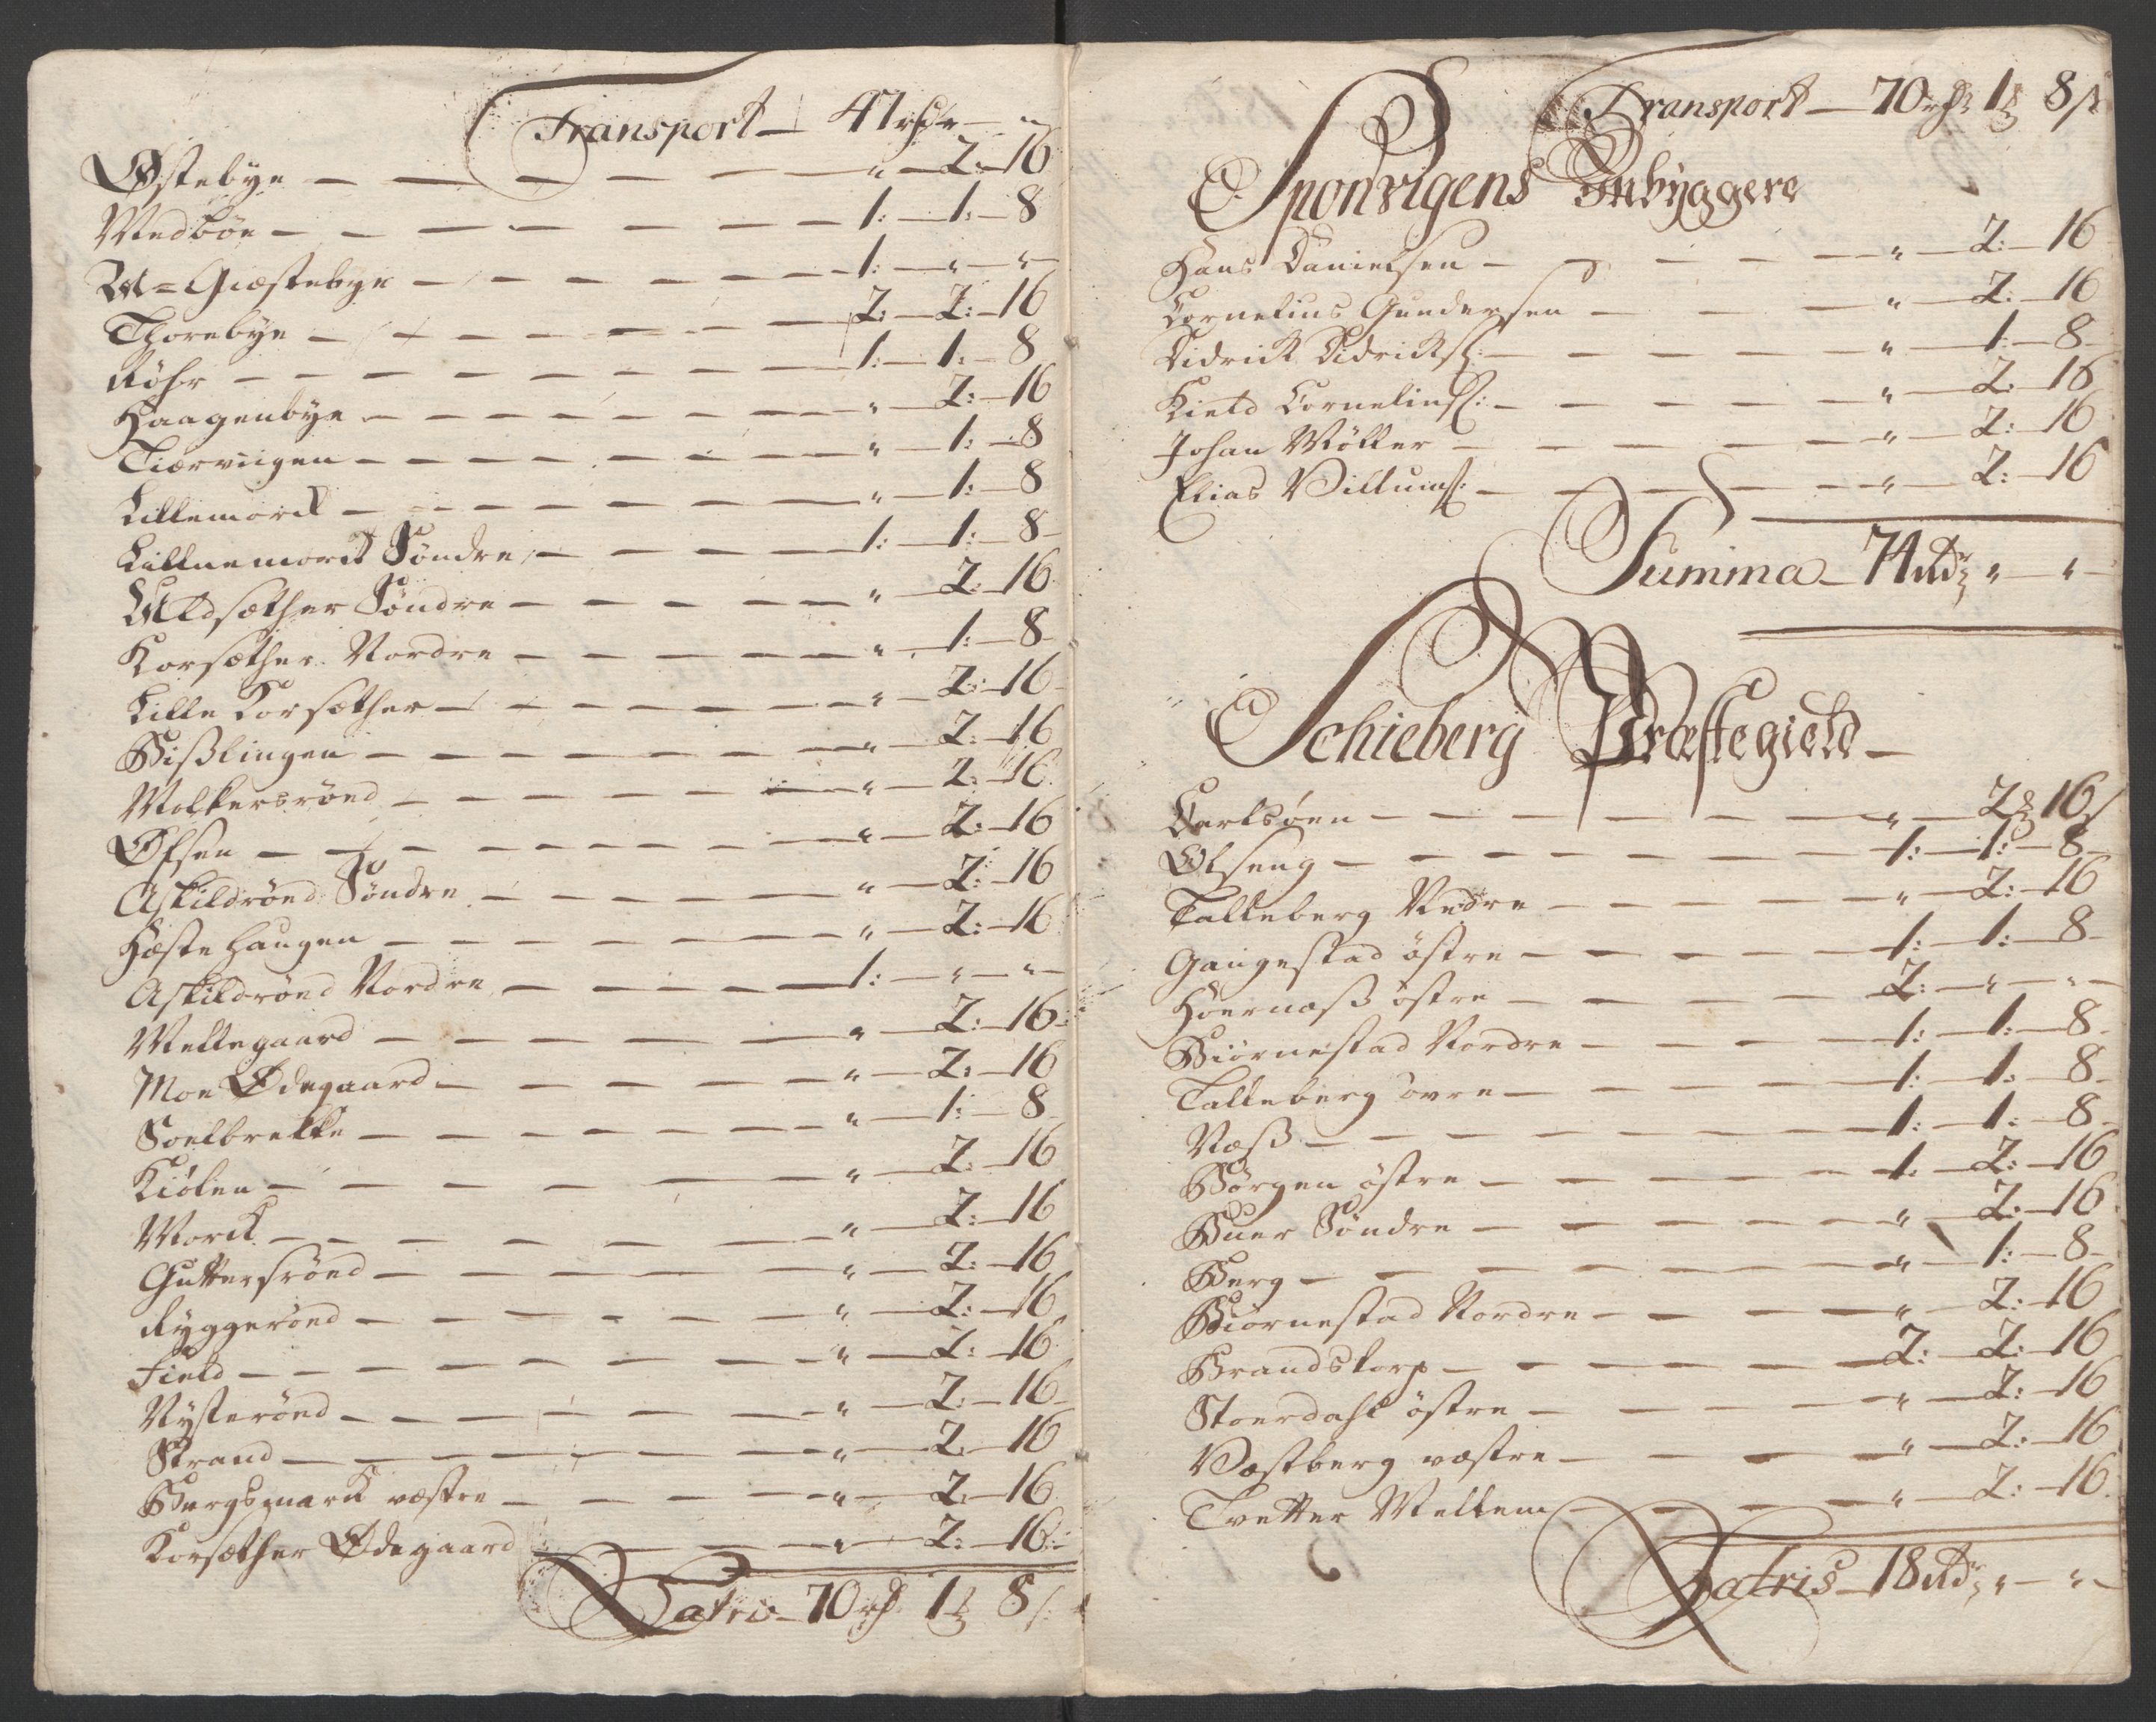 Transport — 47 rdr — "
Østebye — " — 2: — 16
Medbøe — 1: — 1: — 8
W=Giæstebye — 1: — " — "
Thorebye — 2: — 2: — 16
Röhr — 1: — 1: — 8
Haagenbye — " — 2: — 16
Tiærviigen — " — 1: — 8
Lillemorck — " — 1: — 8
Lillnemorck Söndre — 1: — 1: — 8
Uldsæther Söndre — " — 2: — 16
Korsæther Nordre — " — 1: — 8
Lille Korsæther — " — 2: — 16
Bißlingen — " — 2: — 16
Molkersrönd — " — 2: — 16
Øfsen — " — 2: — 16
Askildrönd Söndre — " — 2: — 16
Hæstehaugen — " — 2: — 16
Askildrönd Nordre — 1: — " — "
Mellegaard — " — 2: — 16
Moe Ødegaard — " — 2: — 16
Soelbrekke — " — 1: — 8
Kiölen — " — 2: — 16
Morck — " — 2: — 16
Guttersrönd — " — 2: — 16
Ryggerönd — " — 2: — 16
Field — " — 2: — 16
Nysterönd — " — 2: — 16
Strand — " — 2: — 16
Bergsmarck væstre — " — 2: — 16
Korsæther Ødegaard — " — 2: — 16
Latris — 70 rd 1 8
Transport — 70 rd 1 8
Sponvigens Inbÿggere
Hans Danielsen — " — 2: — 16
Cornelius Gundersen — " — 2: — 16
Didrick Didricks: — " — 1: — 8
Kield Cornelius: — " — 2: — 16
Johan Möller — " — 2: — 16
Elias Villums: — " — 2: — 16
Summa — 74 rdr " — "
Schieberg Præstegield —
Karlsöen — " — 2 16
Olseng — 1: — 1: — 8
Talleberg Nedre — " — 2: — 16
Gaugestad östre — 1: — 1: — 8
Höernæß östre — 2: — " — "
Biörnestad Nordre — 1: — 1: — 8
Talleberg övre — 1: — 1: — 8
Næß — 1: — 1: — 8
Börgen östre — 1: — 2: — 16
Buer Söndre — " — 2: — 16
Berg — " — 1: — 8
Biörnestad Nordre — " — 2: — 16
Brandstorp — 2: — 2: — 16
Stoerdahl östre — " — 2: — 16
Væstberg væstre — " — 2: — 16
Tvetter Mellem — " — 2: — 16
Latris — 18 rdr " — "